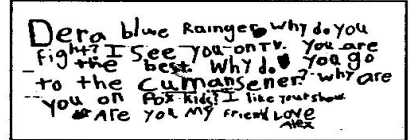 Dera blue Rainger why do you
fight? I See you on TV. you are
the best. Why do you go
to the cumansener? why are
you on Fox Kids? I like your show.
Are you my friend Love
Alex